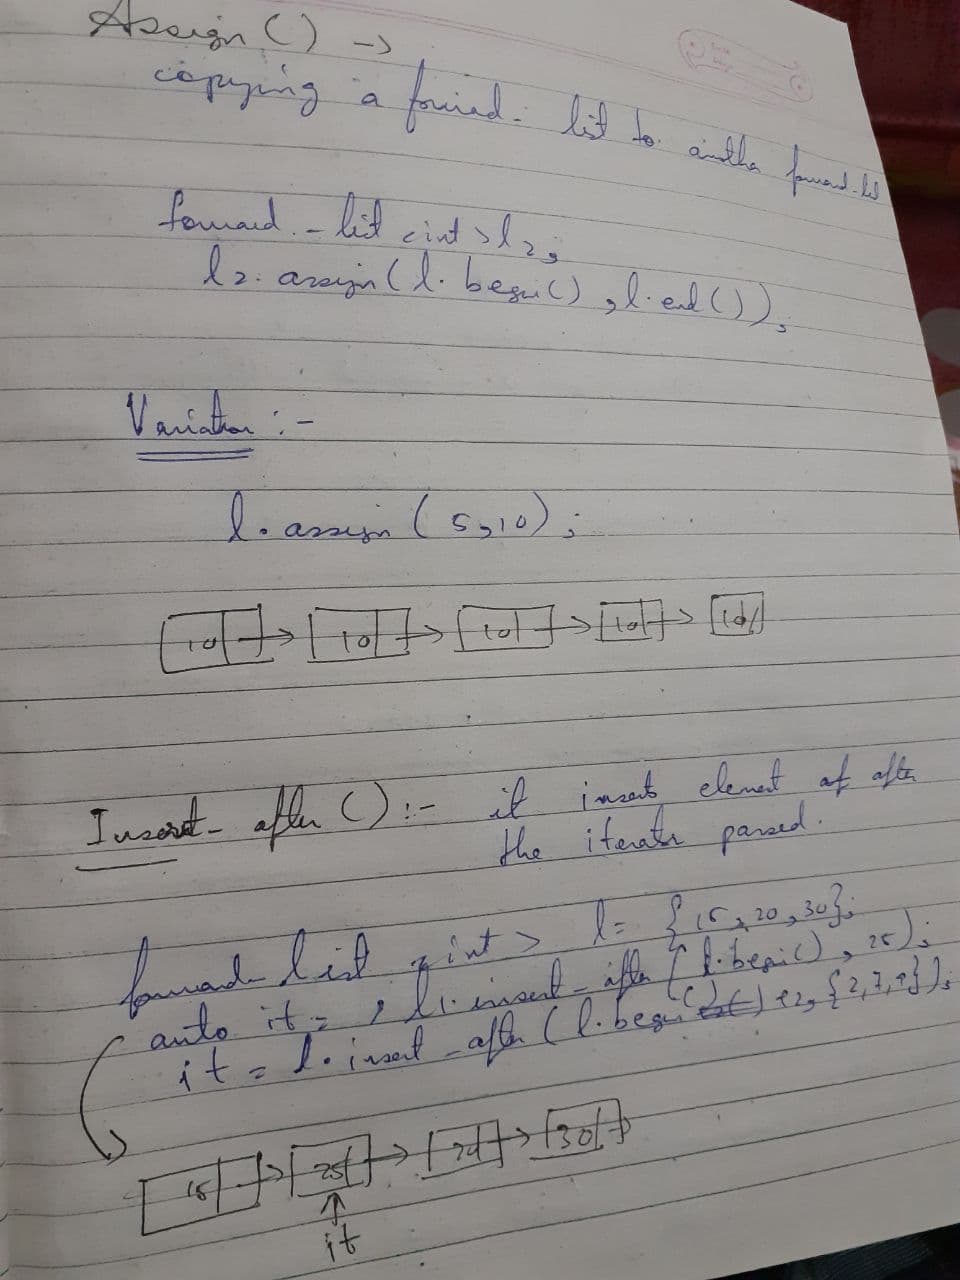 Assign () ->
copying a forward - list to another forward-list
forward - list <int> l2;
l2. assign (l. begin () , l. end ());
Variation :-
l. assign ( 5,10) ;
10 10 10 10 10
Insert- after () :- it inserts element of after
the iterator parsed.
forward- list <int> l= {15, 20, 30};
auto it = l1. insert - after (l. begin () , 25);
it = l. insert - after ( l. begin () {2,7,
15 25 20 30
it